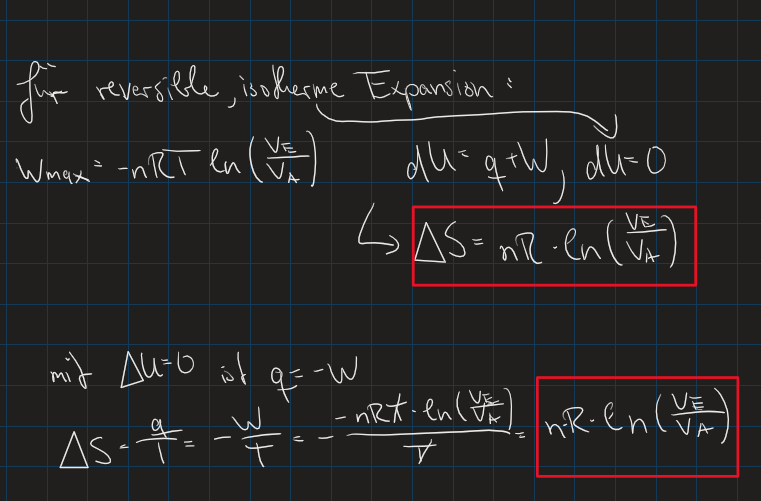 für reversible, isotherme Expansion:
Wmax = -nRT ln(VE/VA) dU = q+W, dU=0
ΔS = nR · ln(VE/VA)
mit ΔU=0 ist q=-W
ΔS = q/T = -W/T = - -nRT·ln(VE/VA)/T = n·R·ln(VE/VA)